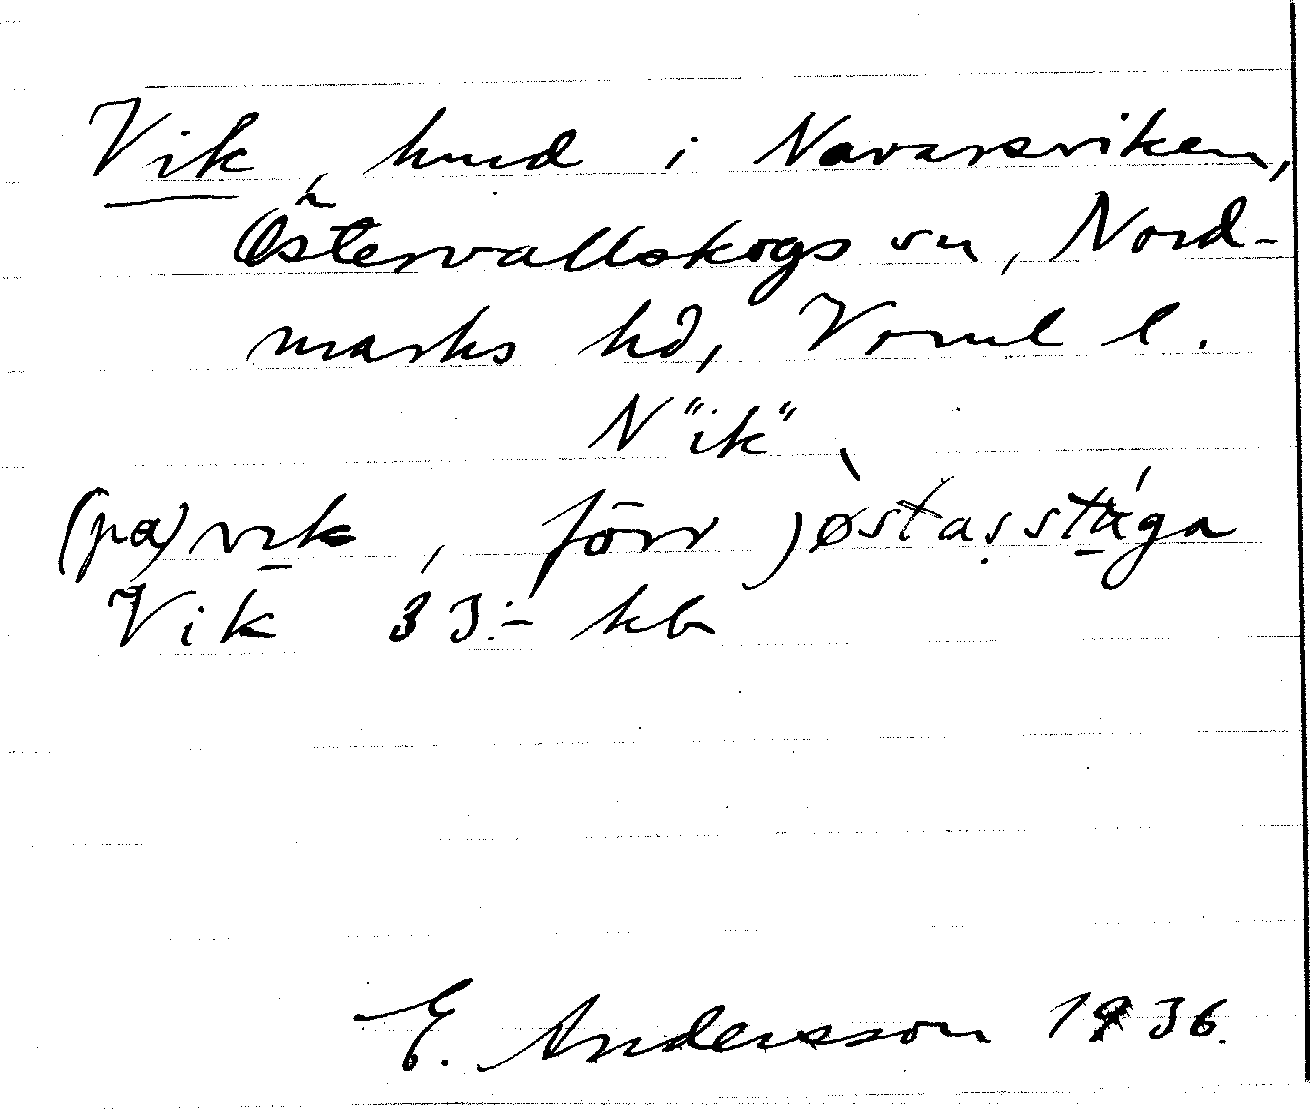 Vik, hmd i Navarsviken,
Östervallskogs sn, Nord-
marks hd, Vrml l.
N "ik"
(pa) vik, förr jøstasstäga
Vik 33:- kb
E. Andersson 1936.